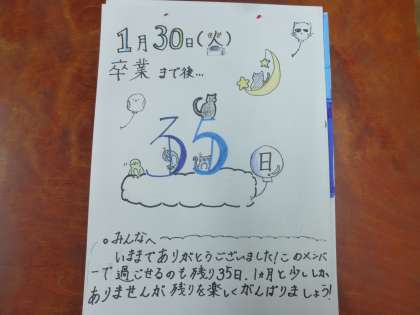 1月30日(火)
卒業まで後...
35
日
。みんなへ
いままでありがとうございました!このメンバ
ーで過ごせるのも残り35日、1ヵ月と少ししか
ありませんが残りを楽しくがんばりましょう!